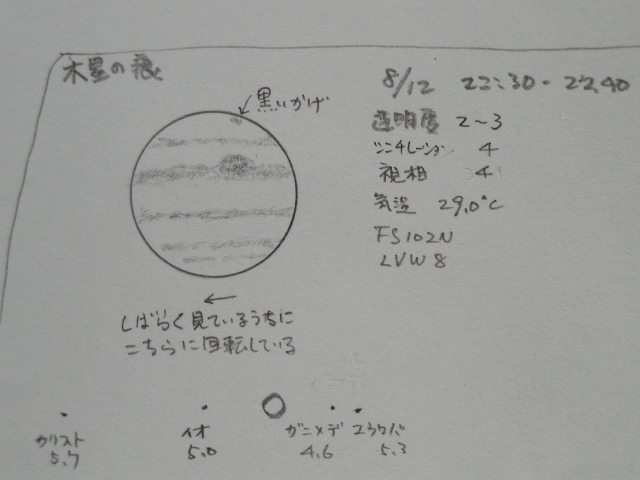 木星の痕
8/12 22:30 - 22.40
黒いかげ
透明度 2~3
シンチレーション 4
視相 4
気温 29.0℃
FS102N
LVW8
←
しばらく見ているうちに
こちらに回転している
カリスト イオ ガニメデ エウロパ
5.7 5.0 4.6 5.3